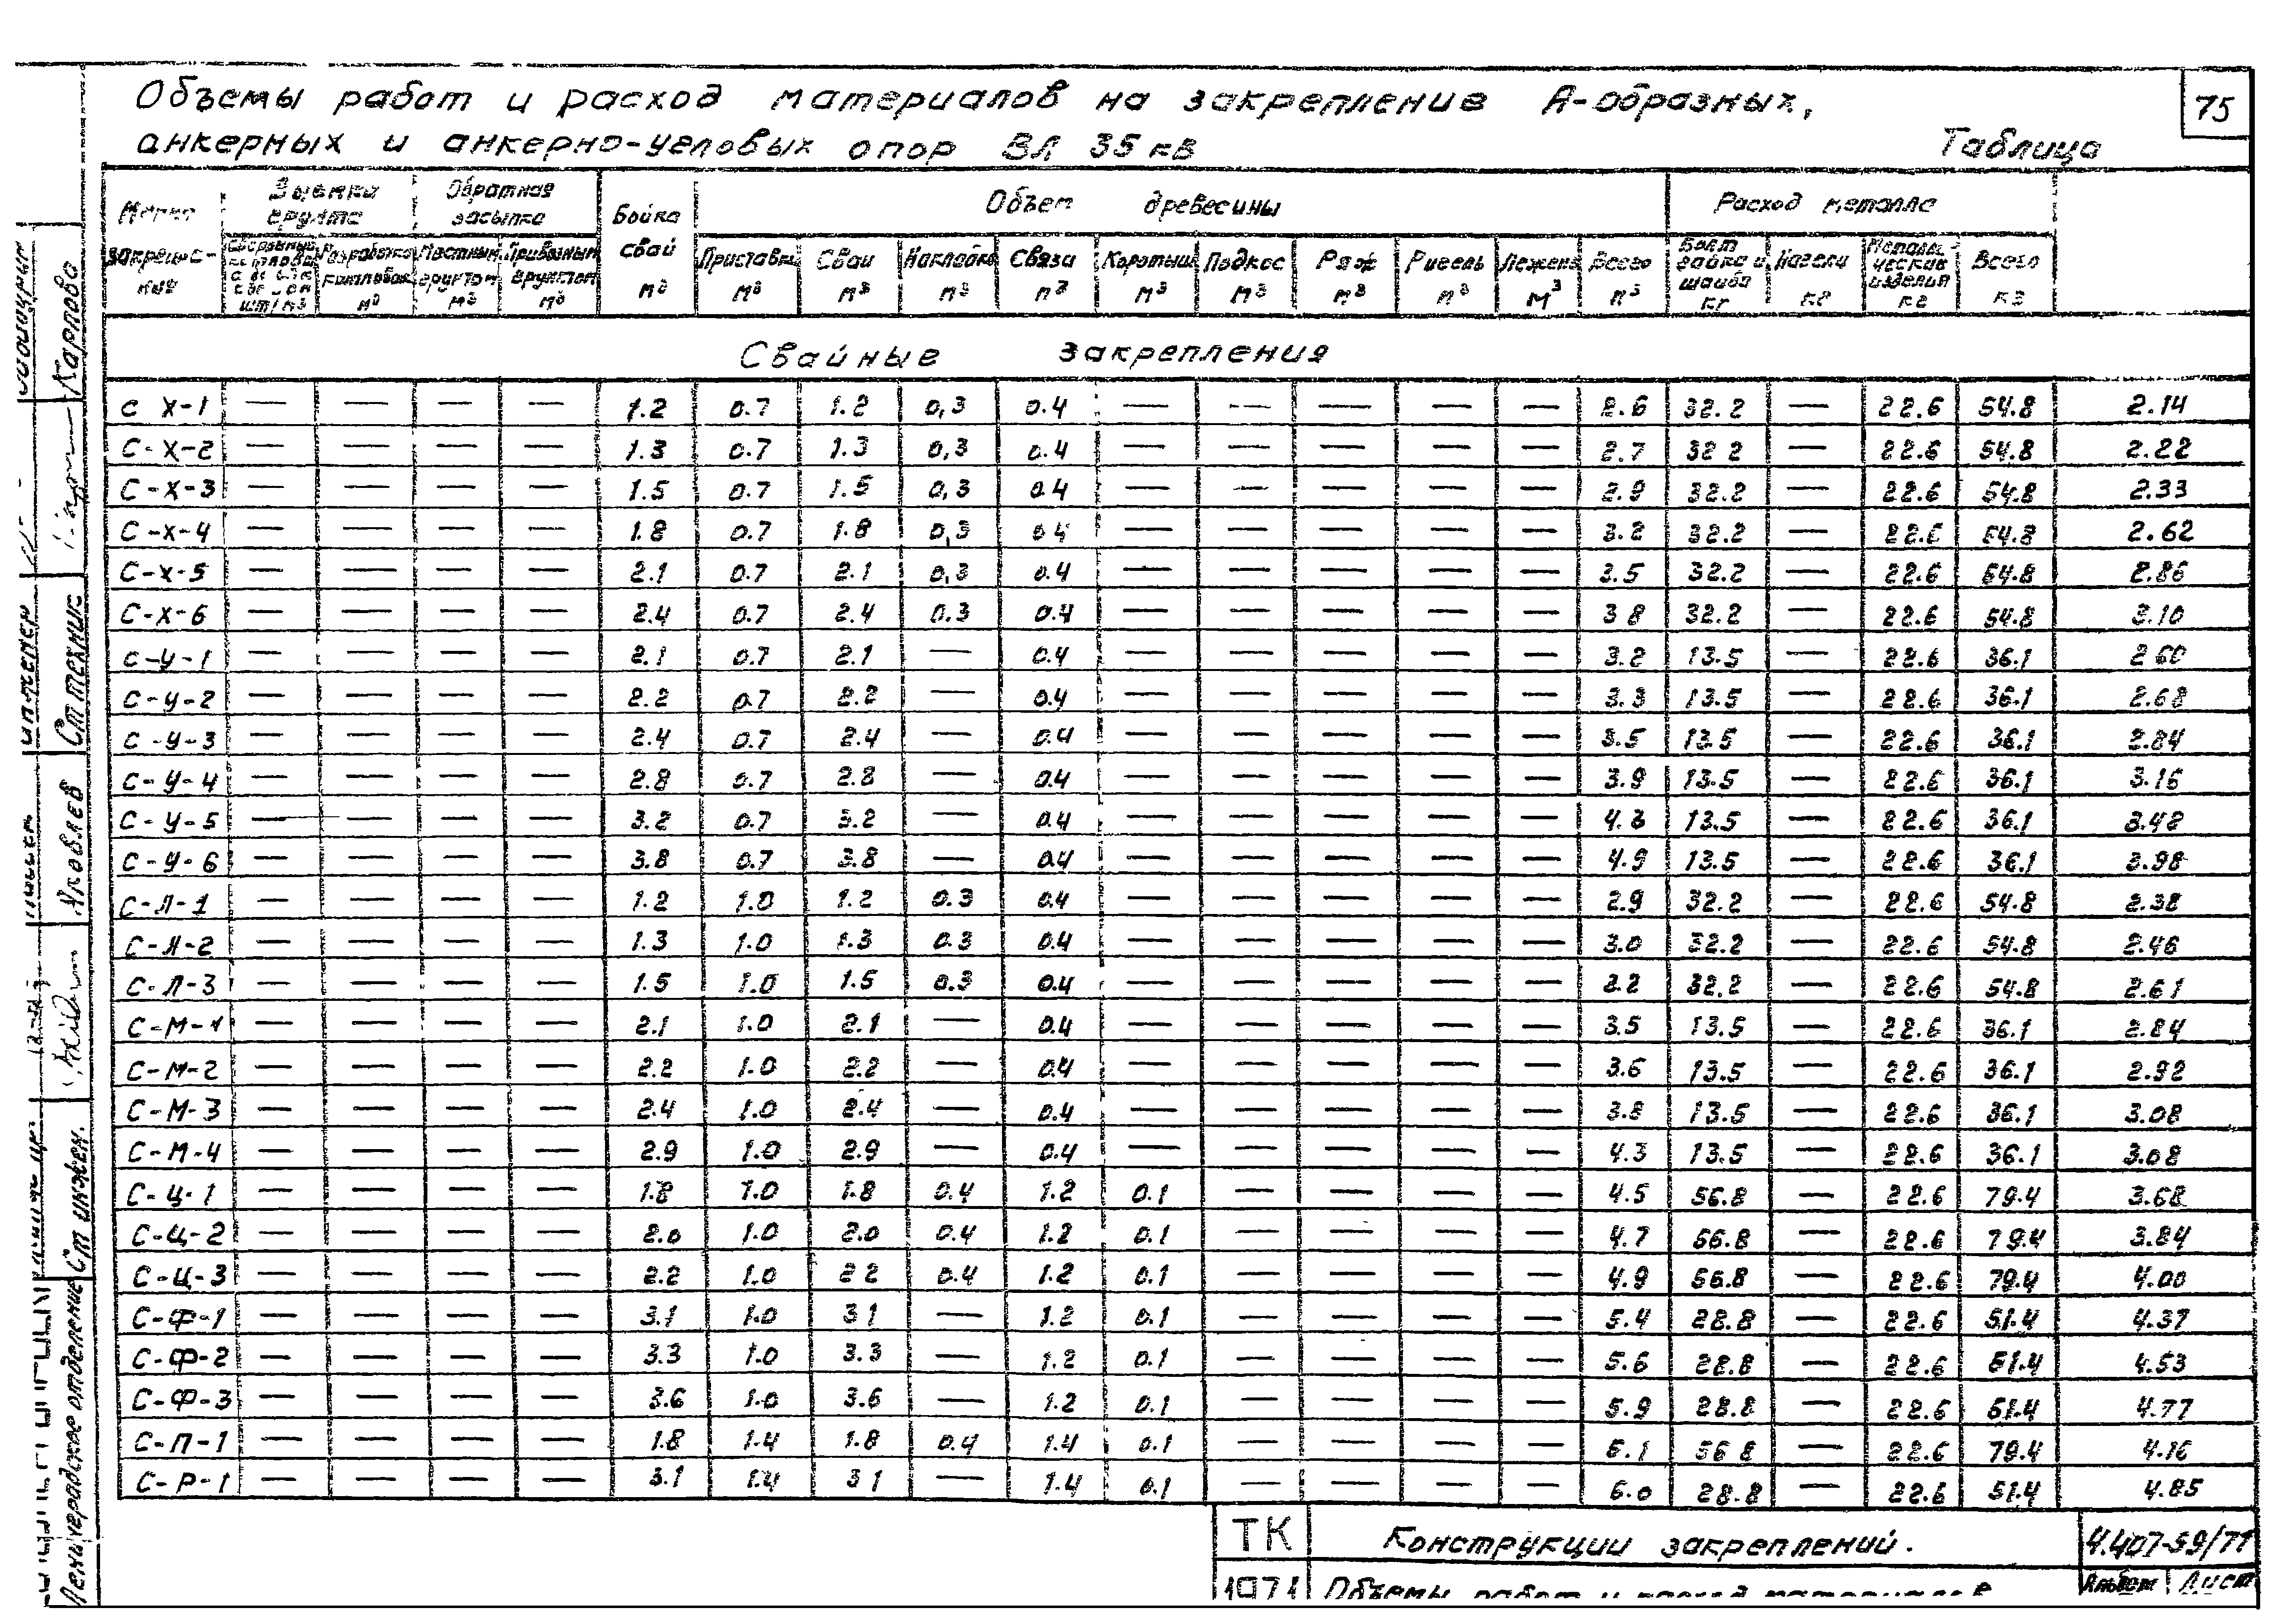 75
Объемы работ и расход материалов на закрепление А-образных,
анкерных и анкерно-угловых опор ВЛ 35 кв
Таблица
Марка закрепле-ния
Выемка грунта
Обратная засыпка
Бойка свай м³
Объем древесины
Расход металла
шт/м³
Разработка котлован м³
Местным грунтом м³
Привозным грунтом м³
Приставки м³
Сваи м³
Накладка м³
Связи м³
Коротыш м³
Подкос м³
Ряж м³
Ригель м³
Лежень м³
Всего м³
Болт гайка и шайба кг
Нагели кг
Металли-ческие изделия кг
Всего кг
Свайные закрепления
С Х-1 — — — — 1.2 0.7 1.2 0,3 0.4 — — — — — 2.6 32.2 — 22.6 54.8 2.14
С-Х-2 — — — — 1.3 0.7 1.3 0,3 0.4 — — — — — 2.7 32 2 — 22.6 54.8 2.22
С-Х-3 — — — — 1.5 0.7 1.5 0,3 0.4 — — — — — 2.9 32.2 — 22.6 54.8 2.33
С-Х-4 — — — — 1.8 0.7 1.8 0,3 0 4 — — — — — 3.2 32.2 — 22.6 54.8 2.62
С-Х-5 — — — — 2.1 0.7 2.1 0,3 0.4 — — — — — 3.5 32.2 — 22.6 54.8 2.86
С-Х-6 — — — — 2.4 0.7 2.4 0.3 0.4 — — — — — 3 8 32.2 — 22.6 54.8 3.10
С-У-1 — — — — 2.1 0.7 2.1 — 0.4 — — — — — 3.2 13.5 — 22.6 36.1 2 60
С-У-2 — — — — 2.2 0.7 2.2 — 0.4 — — — — — 3.3 13.5 — 22.6 36.1 2.68
С-У-3 — — — — 2.4 0.7 2.4 — 0.4 — — — — — 3.5 13.5 — 22.6 36.1 2.84
С-У-4 — — — — 2.8 0.7 2.8 — 0.4 — — — — — 3.9 13.5 — 22.6 36.1 3.16
С-У-5 — — — — 3.2 0.7 3.2 — 0.4 — — — — — 4.3 13.5 — 22.6 36.1 3.48
С-У-6 — — — — 3.8 0.7 3.8 — 0.4 — — — — — 4.9 13.5 — 22.6 36.1 3.98
С-Л-1 — — — — 1.2 1.0 1.2 0.3 0.4 — — — — — 2.9 32.2 — 22.6 54.8 2.38
С-Л-2 — — — — 1.3 1.0 1.3 0.3 0.4 — — — — — 3.0 32.2 — 22.6 54.8 2.46
С-Л-3 — — — — 1.5 1.0 1.5 0.3 0.4 — — — — — 3.2 32.2 — 22.6 54.8 2.61
С-М-1 — — — — 2.1 1.0 2.1 — 0.4 — — — — — 3.5 13.5 — 22.6 36.1 2.84
С-М-2 — — — — 2.2 1.0 2.2 — 0.4 — — — — — 3.6 13.5 — 22.6 36.1 2.92
С-М-3 — — — — 2.4 1.0 2.4 — 0.4 — — — — — 3.8 13.5 — 22.6 36.1 3.08
С-М-4 — — — — 2.9 1.0 2.9 — 0.4 — — — — — 4.3 13.5 — 22.6 36.1 3.08
С-Ц-1 — — — — 1.8 1.0 1.8 0.4 1.2 0.1 — — — — 4.5 56.8 — 22.6 79.4 3.68
С-Ц-2 — — — — 2.0 1.0 2.0 0.4 1.2 0.1 — — — — 4.7 56.8 — 22.6 79.4 3.84
С-Ц-3 — — — — 2.2 1.0 2 2 0.4 1.2 0.1 — — — — 4.9 56.8 — 22.6 79.4 4.00
С-Ф-1 — — — — 3.1 1.0 3 1 — 1.2 0.1 — — — — 5.4 28.8 — 22.6 51.4 4.37
С-Ф-2 — — — — 3.3 1.0 3.3 — 1.2 0.1 — — — — 5.6 28.8 — 22.6 51.4 4.53
С-Ф-3 — — — — 3.6 1.0 3.6 — 1.2 0.1 — — — — 5.9 28.8 — 22.6 51.4 4.77
С-П-1 — — — — 1.8 1.4 1.8 0.4 1.4 0.1 — — — — 5.1 56 8 — 22.6 79.4 4.16
С-Р-1 — — — — 3.1 1.4 3 1 — 1.4 0.1 — — — — 6.0 28.8 — 22.6 51.4 4.85
ТК
Конструкции закреплений.
4.407-59/71
1971
Объемы работ и расход материалов
Альбом
Лист
Карпова
Ст техник
Яковлев
Ст инжен.
инженер
Ленинградское отделение